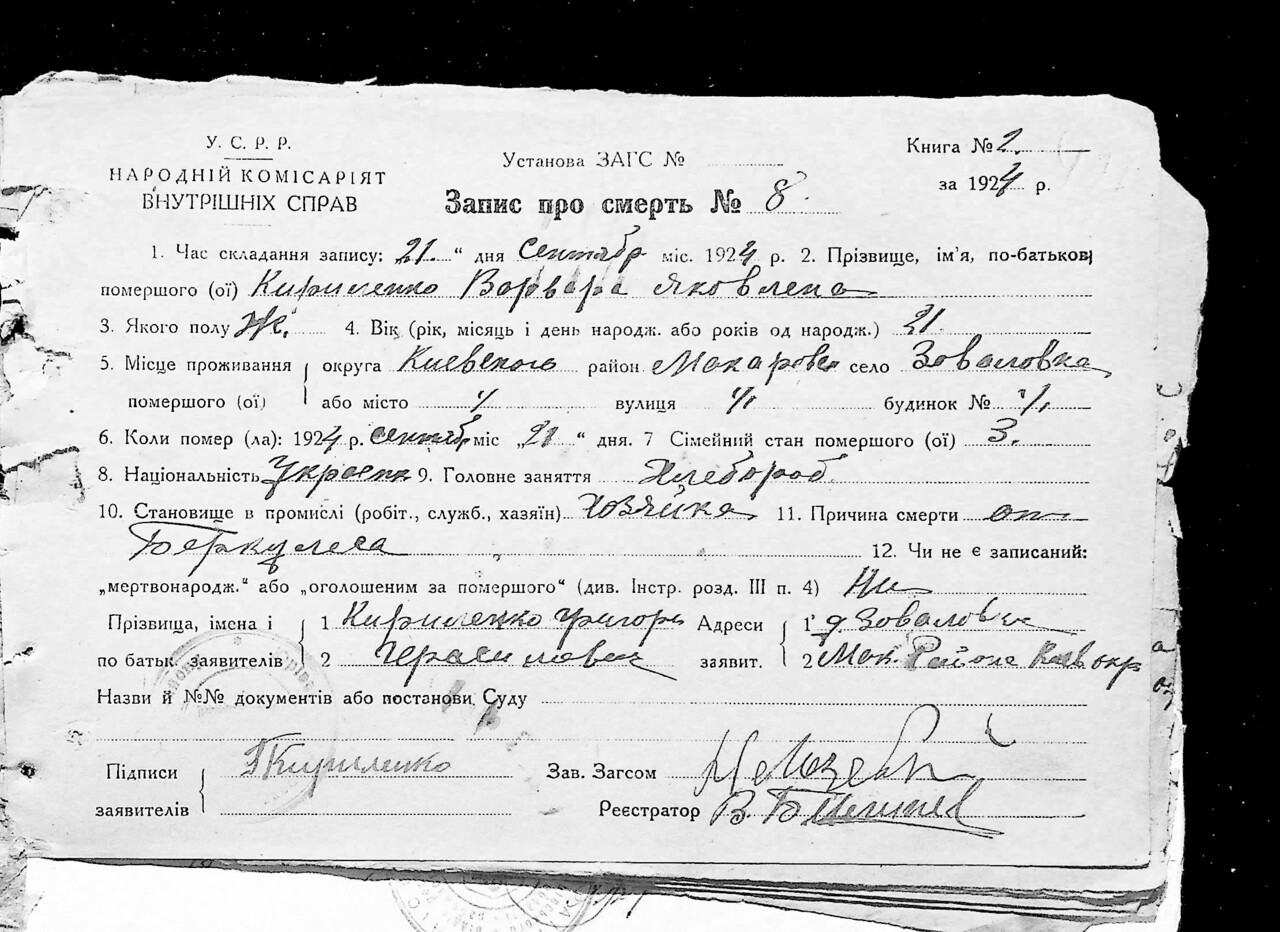 У. С. Р. Р.
НАРОДНІЙ КОМІСАРІЯТ
ВНУТРІШНІХ СПРАВ
Установа ЗАГС №
Книга № 2.
за 1924 р.
Запис про смерть № 8.
1. Час складання запису: 21. “ дня Сентябр міс. 1924 р. 2. Прізвище, ім'я, по-батькові
помершого (ої) Кириленко Варвара Яковлена
3. Якого полу Ж. 4. Вік (рік, місяць і день народж. або років од народж.) 21
5. Місце проживання округа Киевского район Макаровск село Зоваловка
помершого (ої) або місто вулиця будинок №
6. Коли помер (ла): 1924 р. сентябр міс „21“ дня. 7 Сімейний стан помершого (ої) З.
8. Національність Украенка 9. Головне заняття Хлебороб
10. Становище в промислі (робіт., служб., хазяїн) Хозяйка 11. Причина смерти от
Беркулеса 12. Чи не є записаний:
„мертвонародж.“ або „оголошеним за помершого“ (див. Інстр. розд. III п. 4) Ни
Прізвища, імена і 1 Кириленко Григори Адреси 1 д. Зоваловк
по батьк. заявителів 2 Герасилович заявит. 2 Мак. Района Киевокр
Назви й №№ документів або постанови Суду
Підписи Г Кириленко Зав. Загсом
заявителів Реєстратор В.